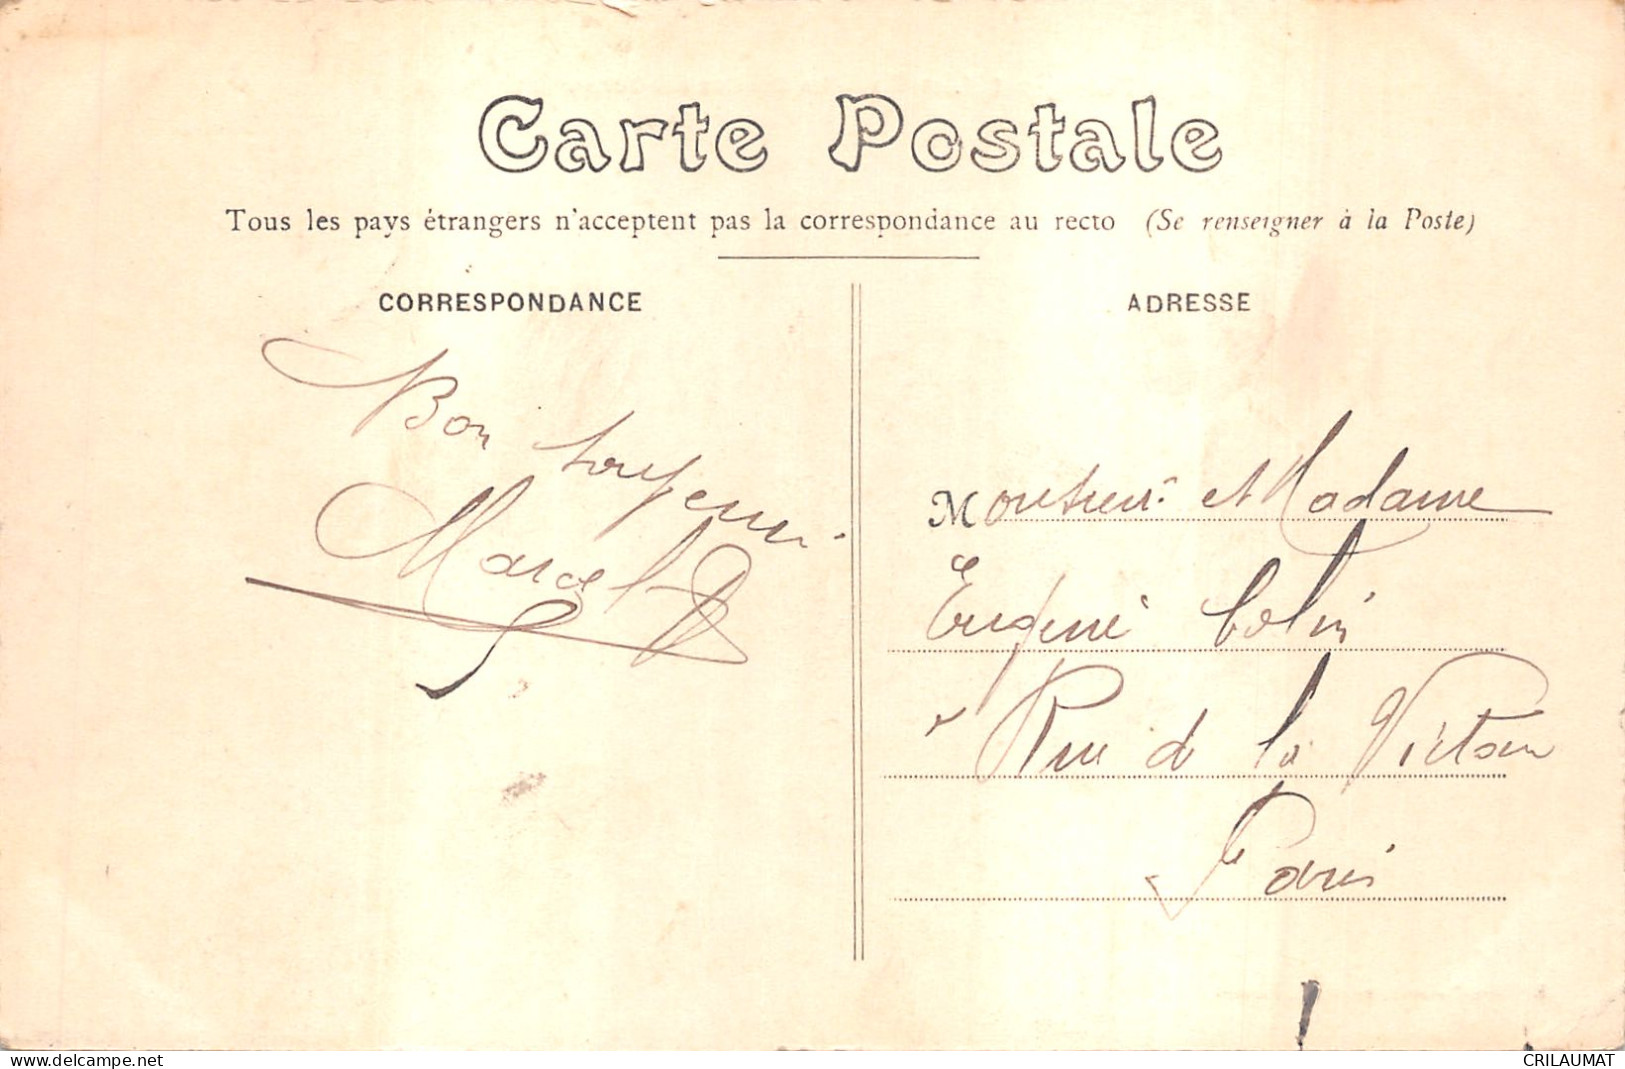 Carte Postale
Tous les pays étrangers n'acceptent pas la correspondance au recto (Se renseigner à la Poste)
CORRESPONDANCE
ADRESSE
Bon souvenir
Marcel
Monsieur et Madame
Eugène Colin
Rue de la Victoire
Paris
www.delcampe.net
CRILAUMAT